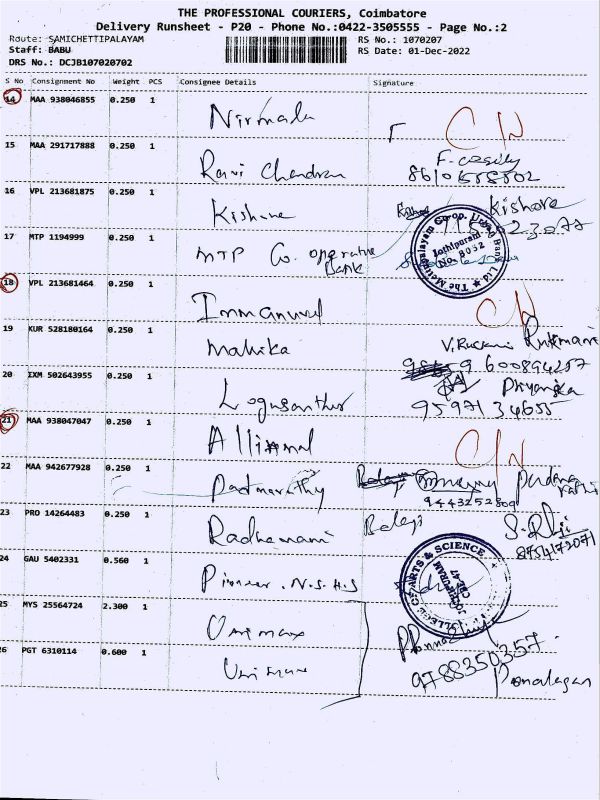 THE PROFESSIONAL COURIERS, Coimbatore
Delivery Runsheet - P20 - Phone No.:0422-3505555 - Page No.:2
Route: SAMICHETTIPALAYAM RS No.: 1070207
Staff: BABU RS Date: 01-Dec-2022
DRS No.: DCJB107020702
S No Consignment No Weight PCS Consignee Details Signature
14 MAA 938046855 0.250 1 Nirmala CN
15 MAA 291717888 0.250 1 Ravi Chandran
16 VPL 213681875 0.250 1 Kishore Kishore
17 MTP 1194999 0.250 1 MTP Co. operative
Bank
The Mettupalayam Co-op. Urban Bank Ltd
Jothipuram
18 VPL 213681464 0.250 1 Immanuvel CN
19 KUR 528180164 0.250 1 Mahika V. Rukmani Rukmani
20 IXM 502643955 0.250 1 Logusanthur Priyanka
95971 34655
21 MAA 938047047 0.250 1 CN
22 MAA 942677928 0.250 1 Padmavathy
9443252809
23 PRO 14264483 0.250 1 Radhamani Balaji
24 GAU 5402331 0.560 1 Pioneer. N.S.H.S
ARTS & SCIENCE
JOTHIPURAM
CBE-47
25 MYS 25564724 2.300 1 Unimax
26 PGT 6310114 0.600 1 Unimax
9788350357
Ponalagan